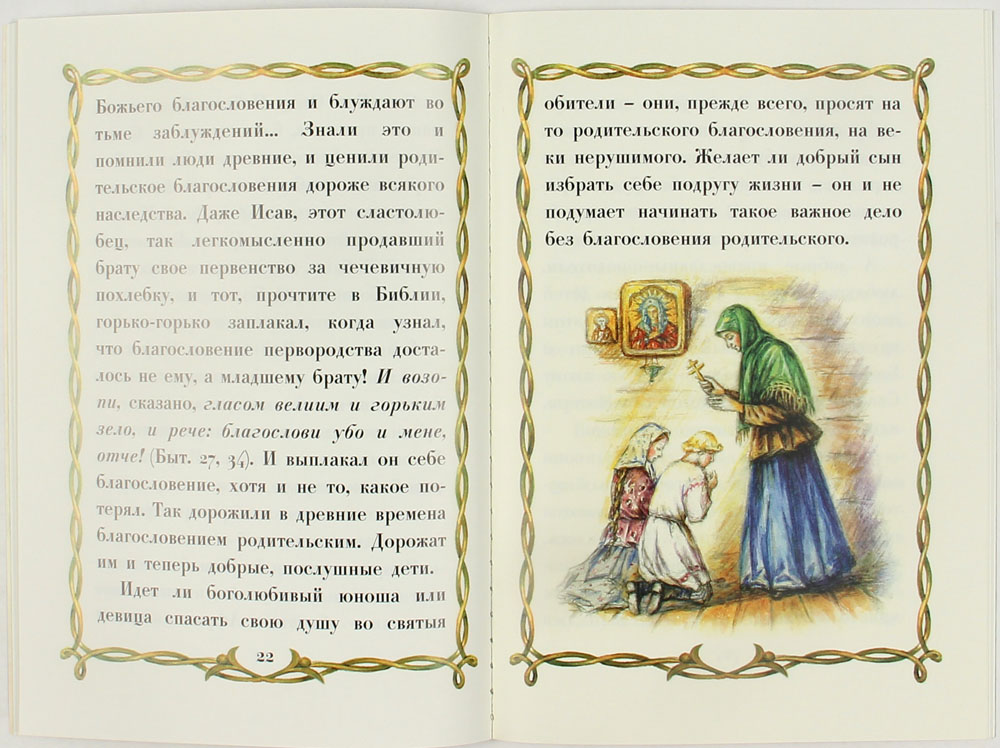 Божьего благословения и блуждают во
тьме заблуждений... Знали это и
помнили люди древние, и ценили роди-
тельское благословения дороже всякого
наследства. Даже Исав, этот сластолю-
бец, так легкомысленно продавший
брату свое первенство за чечевичную
похлебку, и тот, прочтите в Библии,
горько-горько заплакал, когда узнал,
что благословение первородства доста-
лось не ему, а младшему брату! И возо-
пи, сказано, гласом велиим и горьким
зело, и рече: благослови убо и мене,
отче! (Быт. 27, 34). И выплакал он себе
благословение, хотя и не то, какое по-
терял. Так дорожили в древние времена
благословением родительским. Дорожат
им и теперь добрые, послушные дети.
Идет ли боголюбивый юноша или
девица спасать свою душу во святыя
22
обители – они, прежде всего, просят на
то родительского благословения, на ве-
ки нерушимого. Желает ли добрый сын
избрать себе подругу жизни – он и не
подумает начинать такое важное дело
без благословения родительского.